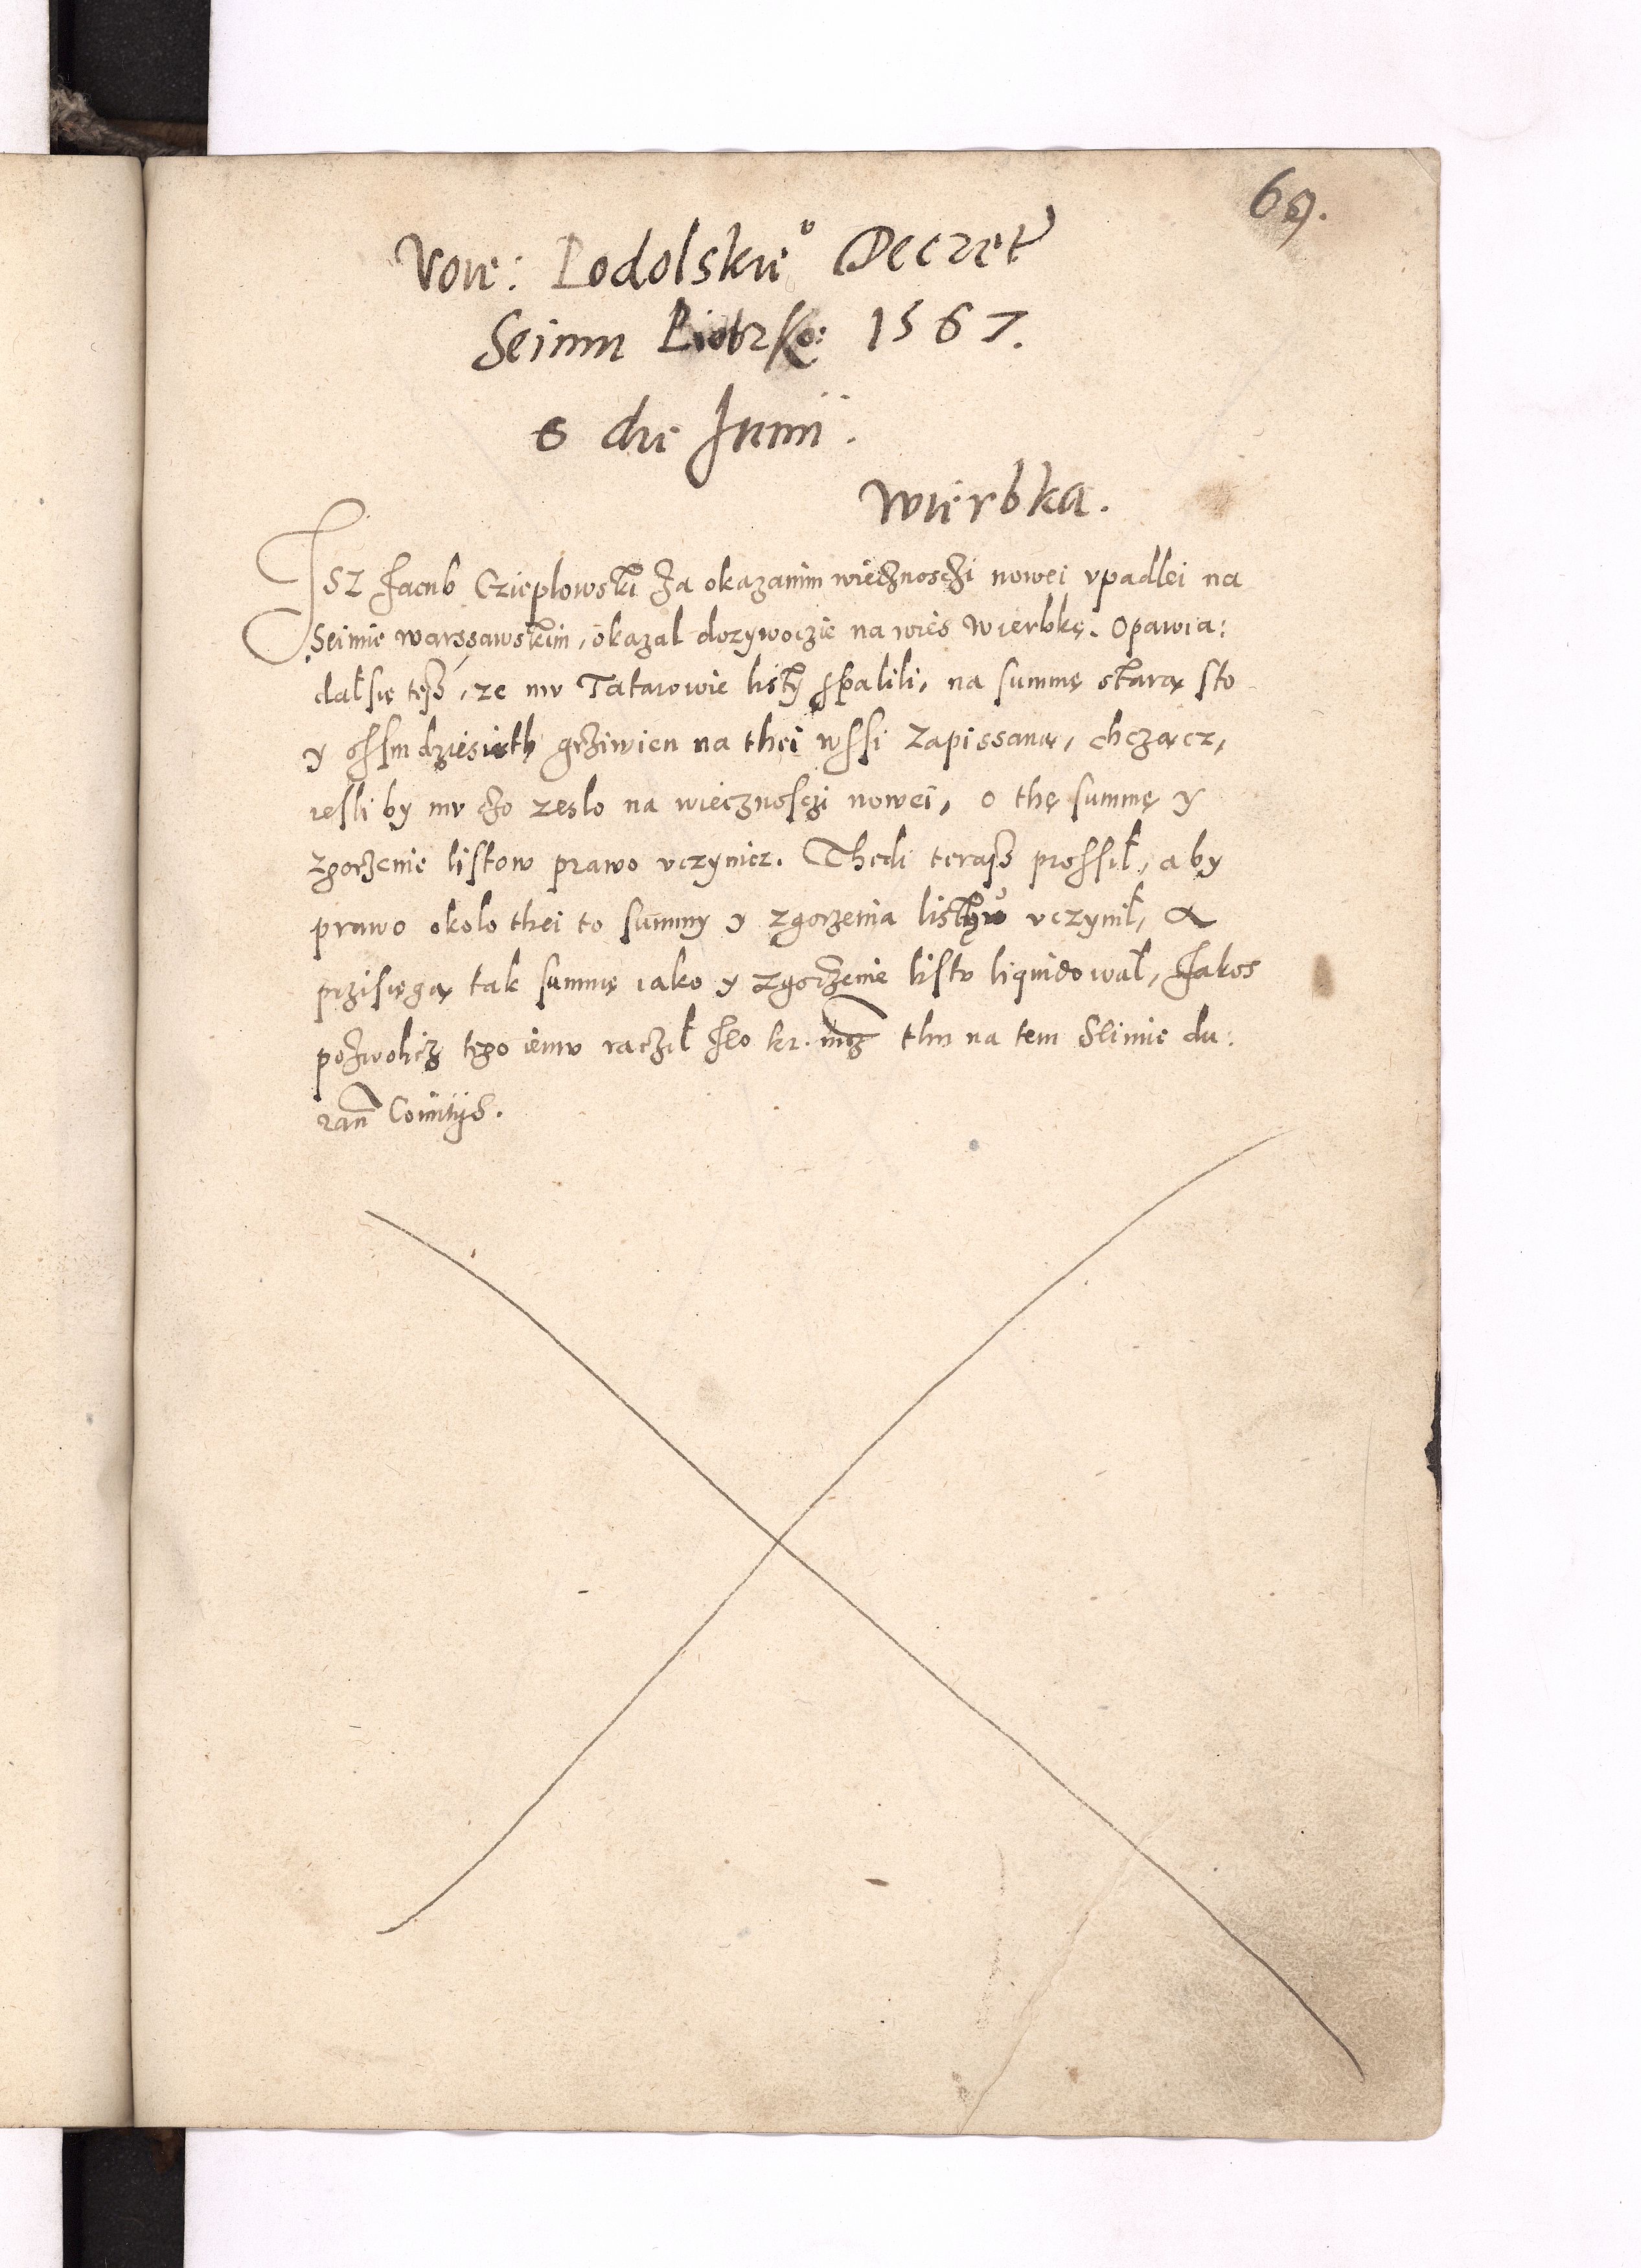 69.
Voie: Podolskieº Decret
Seimu Piotrko: 1567.
6 die Junii.
Wierbka.
Isz Jacub Czieplowski za okazanim wiecznosczi nowei vpadlei na
Seimie warssawskim, okazal dozywoczie na wies Wierbkę. Opawia:
dał się tesz, ze mv Tatarowie listy spalili, na summę starą sto
y ossmdziesiąth grziwien na thei wssi zapissaną, chcącz,
iesli by mv czo zeslo na wiecznosczi nowei, o thę summę y
zgorzenie listow prawo vczynicz. Thedi terasz prossil, aby
prawo okolo thei to summy y zgorzenia listhow vczynił, A
przisięgą tak summę iako y zgorzenie listv liquidował, Jakos
pozwolicz tego iemv raczył Jeo kr. mcz thv na tem Seimie du:
ran Comitijs.